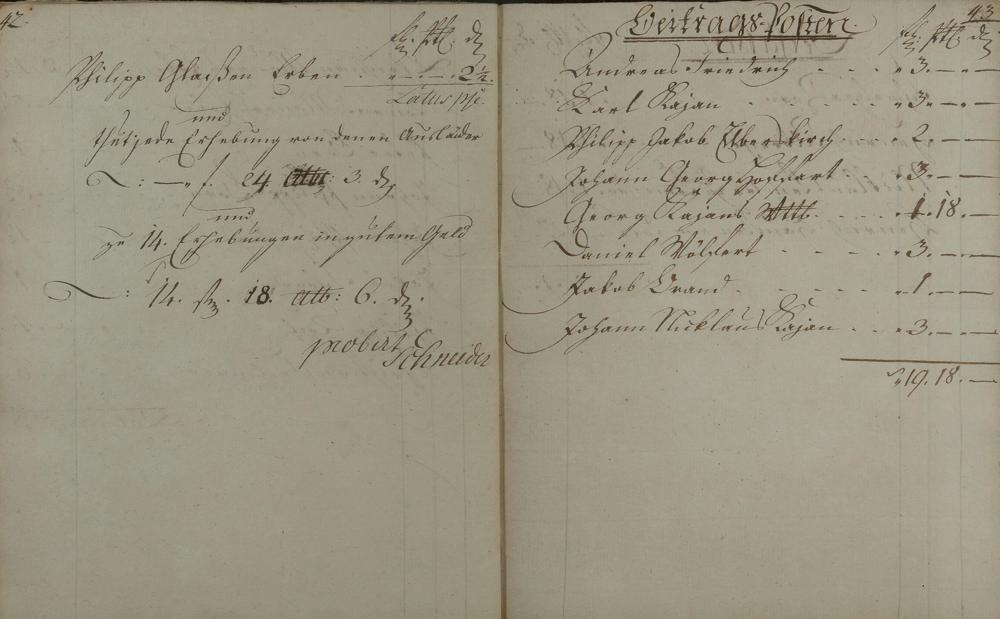 42.
fl. ttl. d
Philipp Glaeßen Erben . „—.—.2½.
Latus pse.
und
thut jede Erhebung von denen Ausländer
: — „ f. 24 alb: 3. d
und
zu 14. Erhebungen in gutem Geld
: 14. f. 18. alb: 6. d.
probert
Schneider
43
Beitrags-Posten.
fl. ttl. d
Andreas Friedrich . . . „ 3.—„—
Karl Kajan . . . . . „ 3.—„—
Philipp Jakob Elberskirch . . 2.—„—
Johann Georg Hoffart . . . „ 3.—„—
Georg Kajans Wttb. . . . . „ 1.18.—
Daniel Wölffert . . . . „ 3.—„—
Jakob Brand . . . . . „ 1.—„—
Johann Nicklaus Kajan . . . „ 3.—„—
19. 18.—